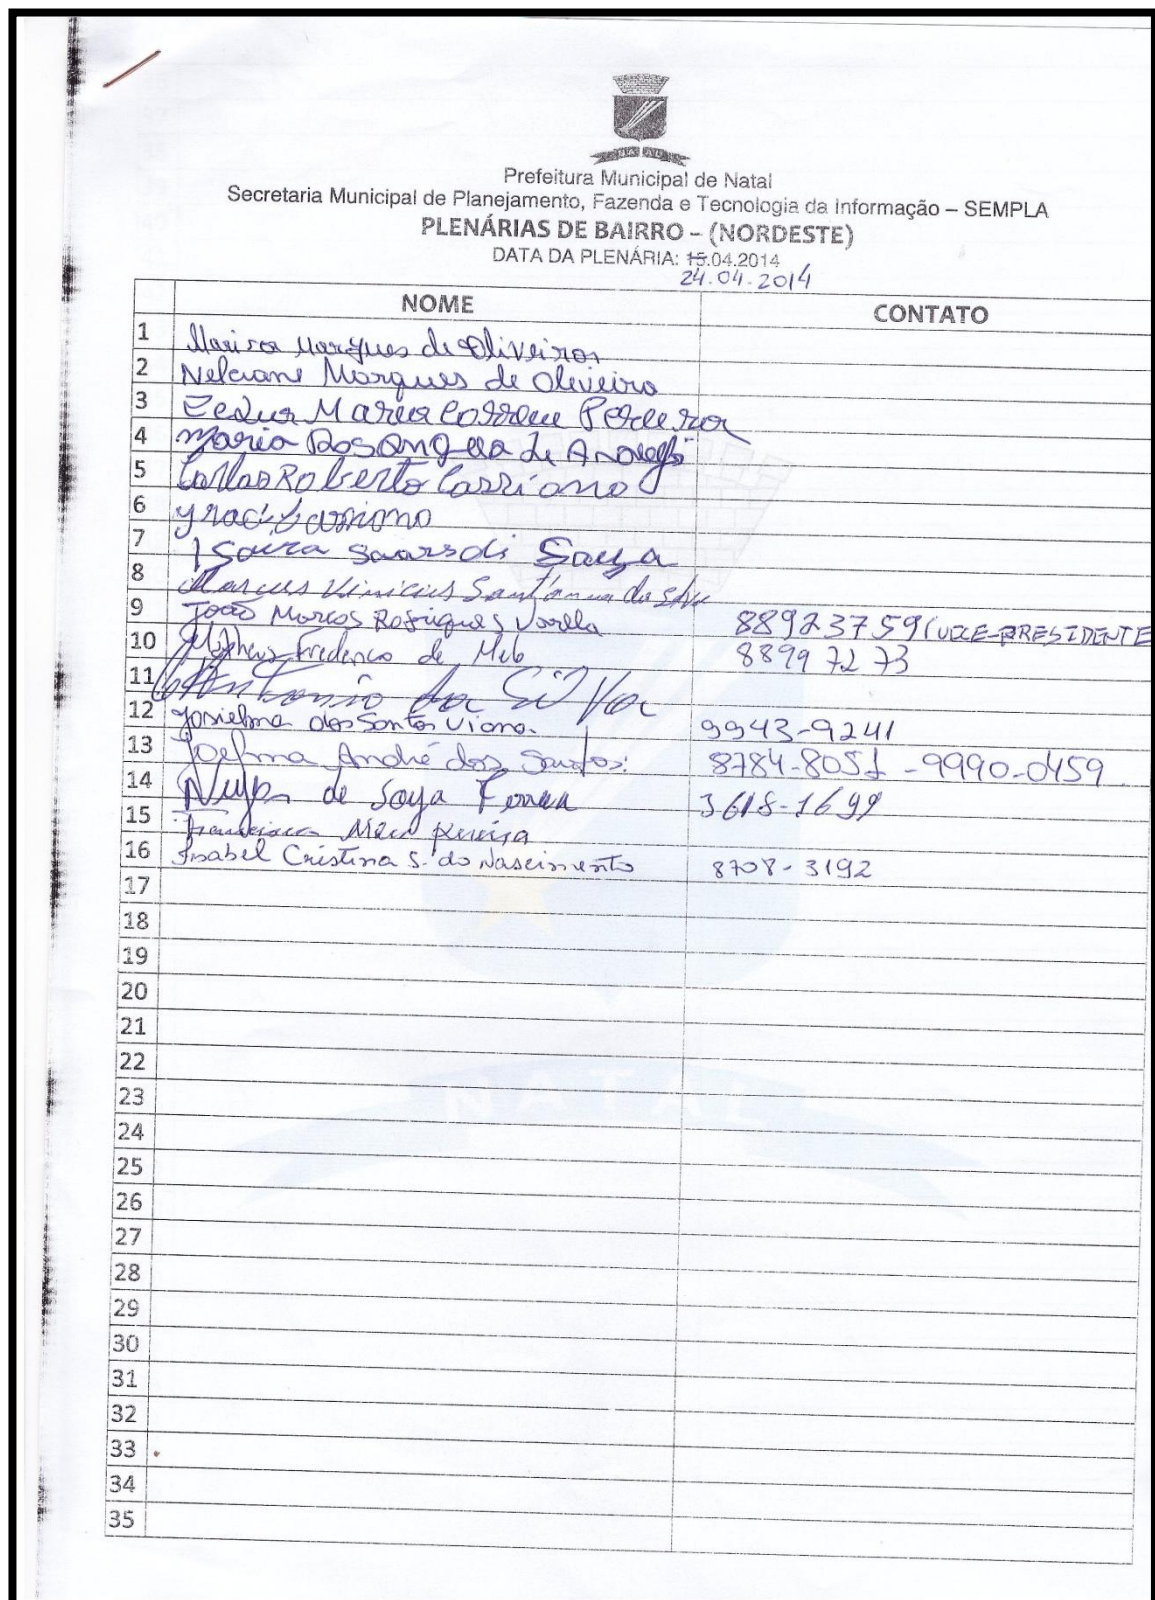 Prefeitura Municipal de Natal
Secretaria Municipal de Planejamento, Fazenda e Tecnologia da Informação – SEMPLA
PLENÁRIAS DE BAIRRO – (NORDESTE)
DATA DA PLENÁRIA: 15.04.2014
24.04.2014
NOME CONTATO
1 Marques de Oliveira
2 Nelciane Marques de Oliveira
3 Maria
4 Maria Rosangela de Araujo
5 Carlos Roberto Cassiano
6 Cassiano
7 Isaura Soares de Souza
8 Marcus Vinicius Sant'anna da Silva
9 João Marcos Rodrigues Varella 88923759 (VICE-PRESIDENTE
10 Matheus Frederico de Melo 8899 7273
11 Antonio da Silva
12 Josielma dos Santos Viana. 9943-9241
13 Joelma André dos Santos: 8784-8051 - 9990-0459
14 de 3618-1699
15 Francisca Pereira
16 Isabel Cristina S. do Nascimento 8708-3192
17
18
19
20
21
22
23
24
25
26
27
28
29
30
31
32
33
34
35
NATAL